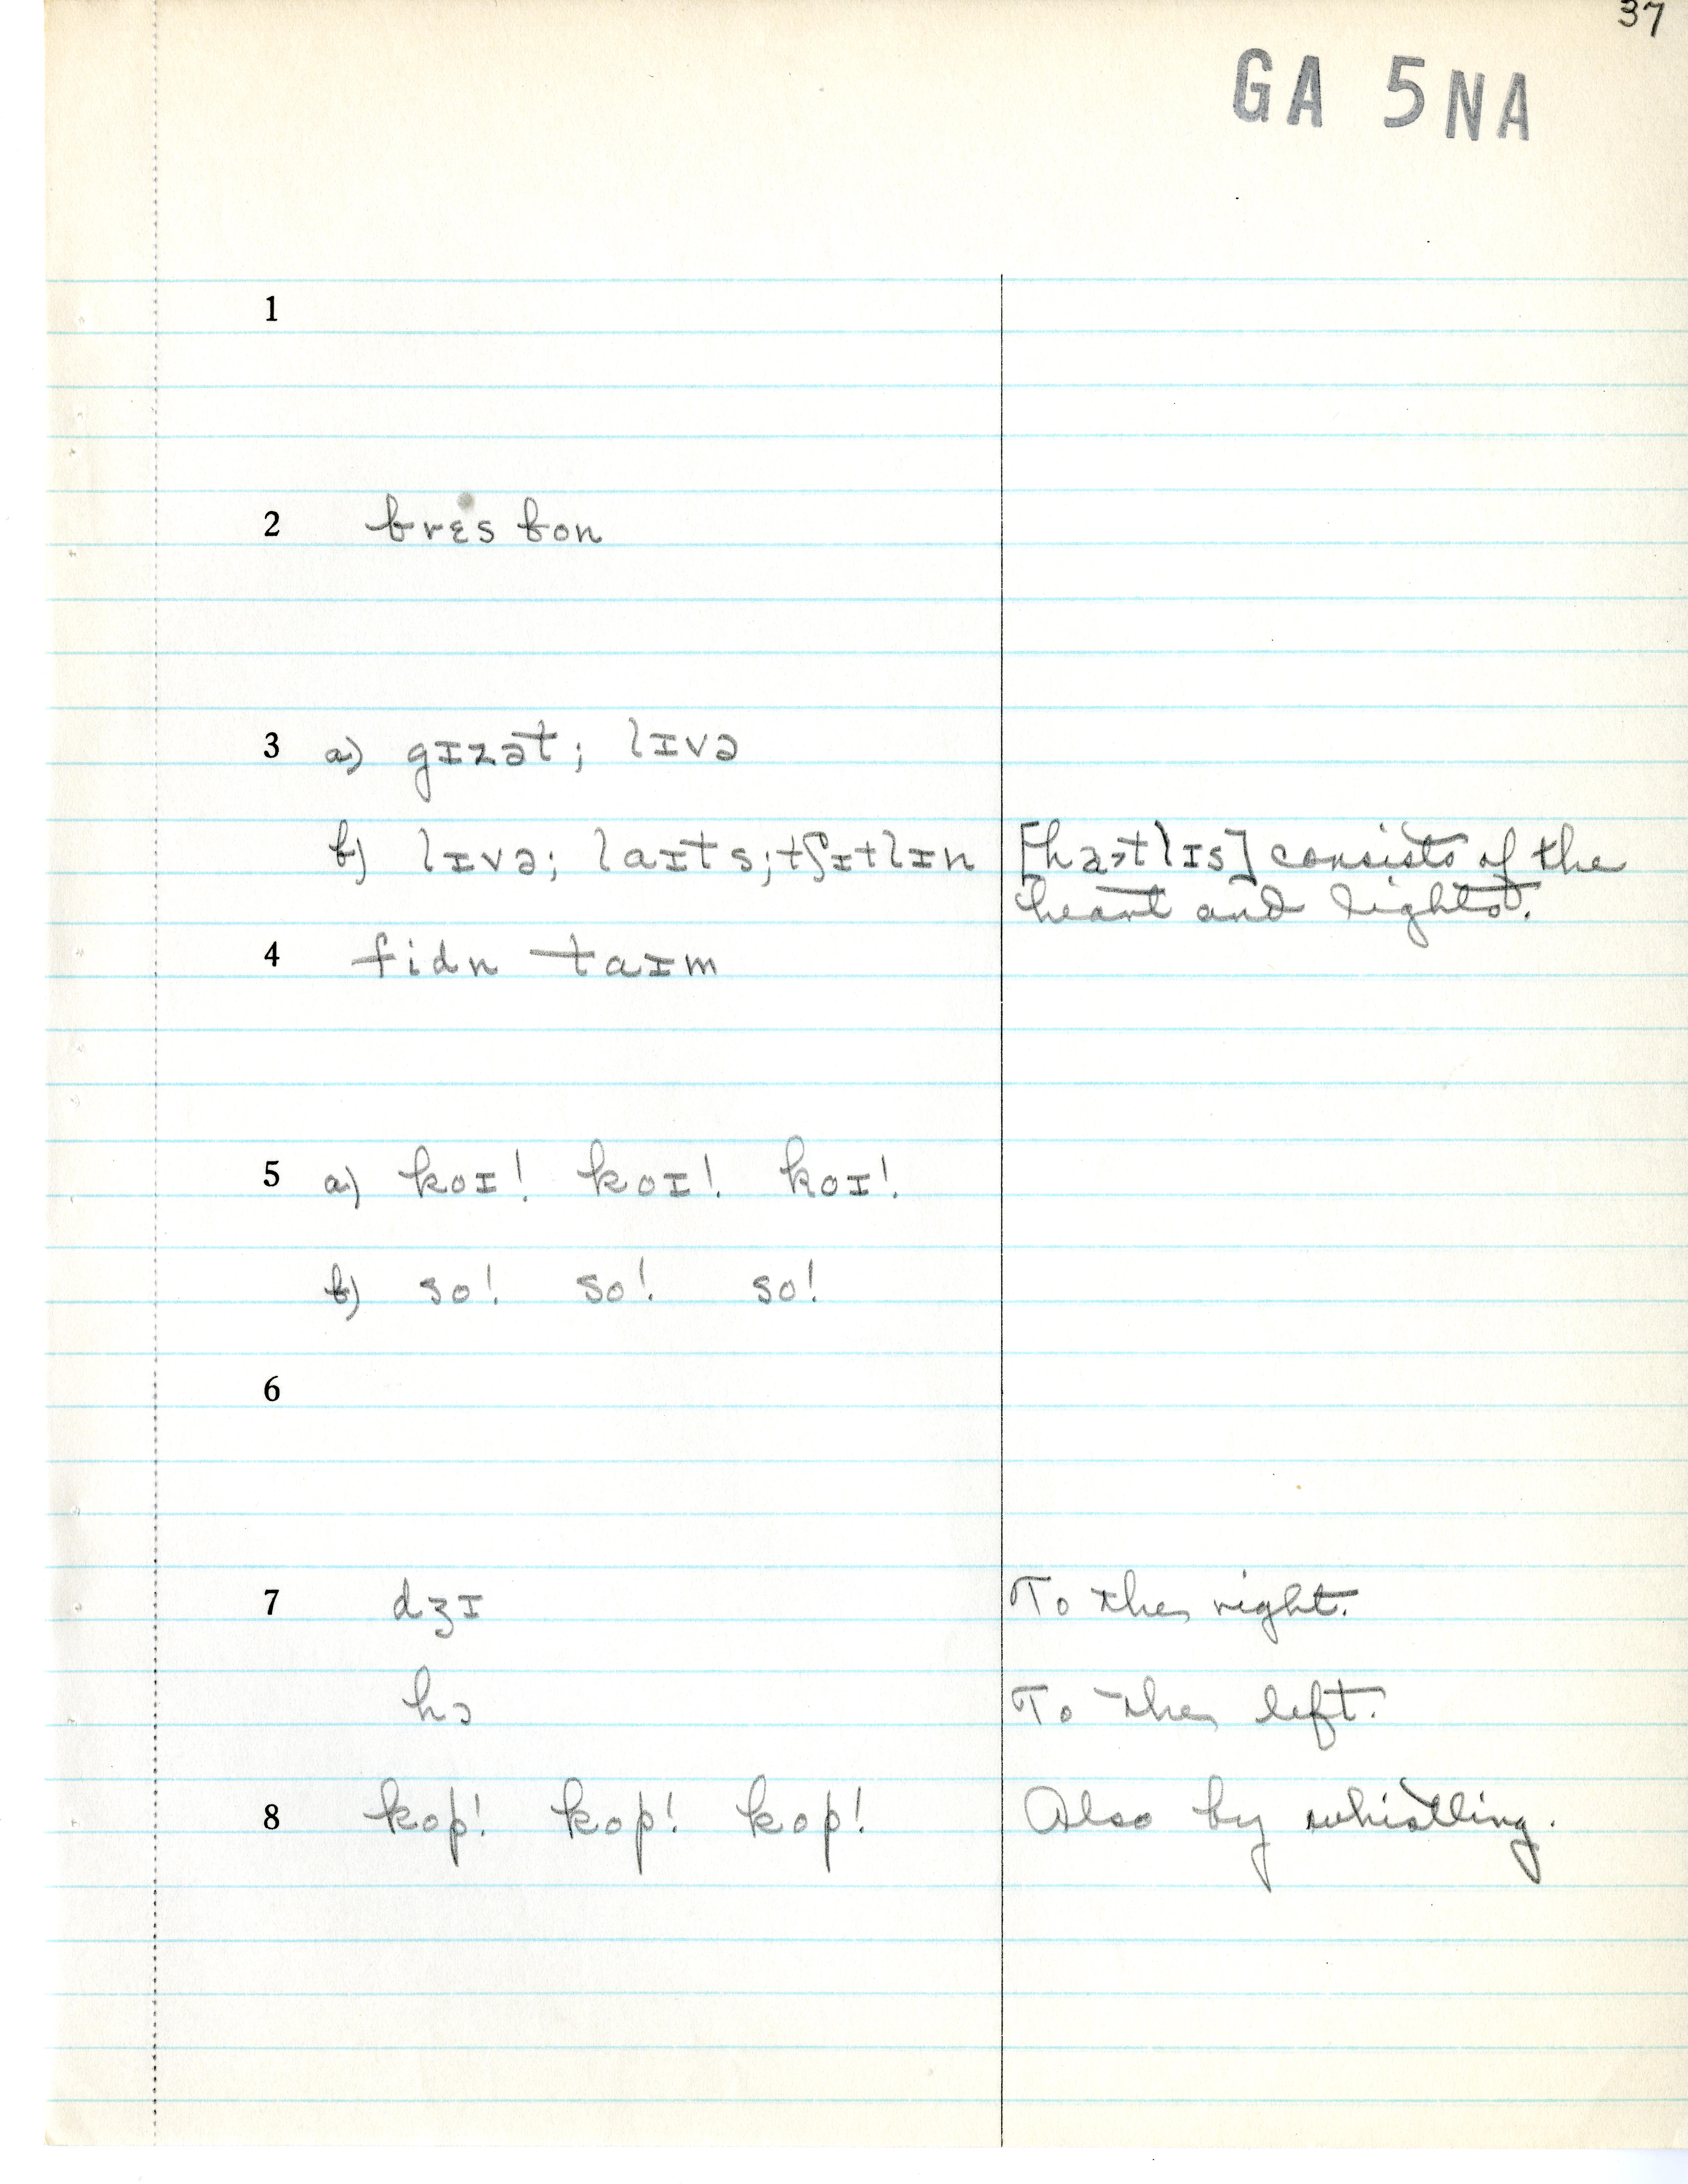 37
GA 5NA
1
2 brɛs bon
3 a) gɪzət; lɪvə
b) lɪvə; laɪts; tʃɪtlɪn [haˑtlɪs] consists of the
heart and lights.
4 fidn taɪm
5 a) koɪ! koɪ! koɪ!
b) so! so! so!
6
7 dʒɪ To the right.
hɔ To the left.
8 kop! kop! kop! Also by whistling.